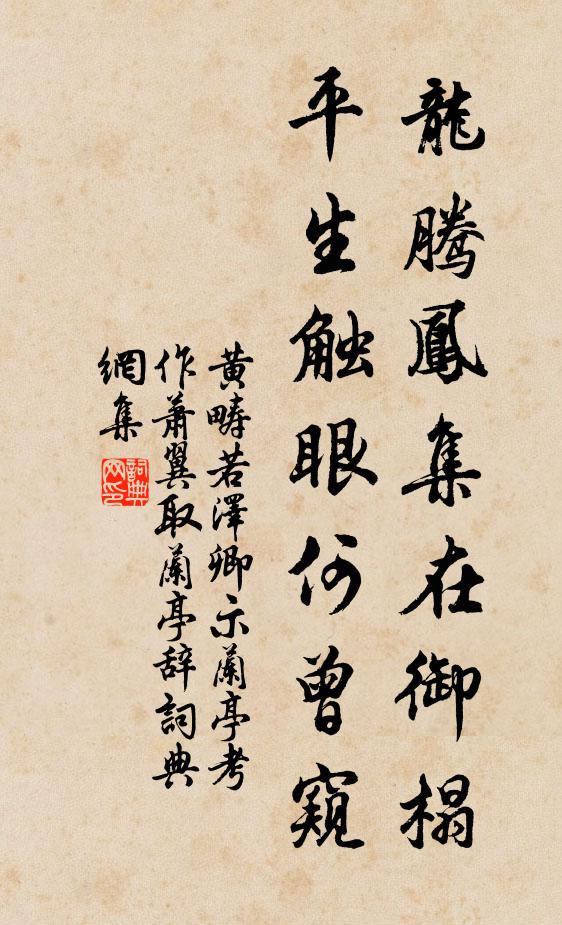 龍騰鳳集在御榻
平生触眼何曾窺
黄疇若澤卿示蘭亭考
作萧翼取蘭亭辞詞典
網集
詞典网印